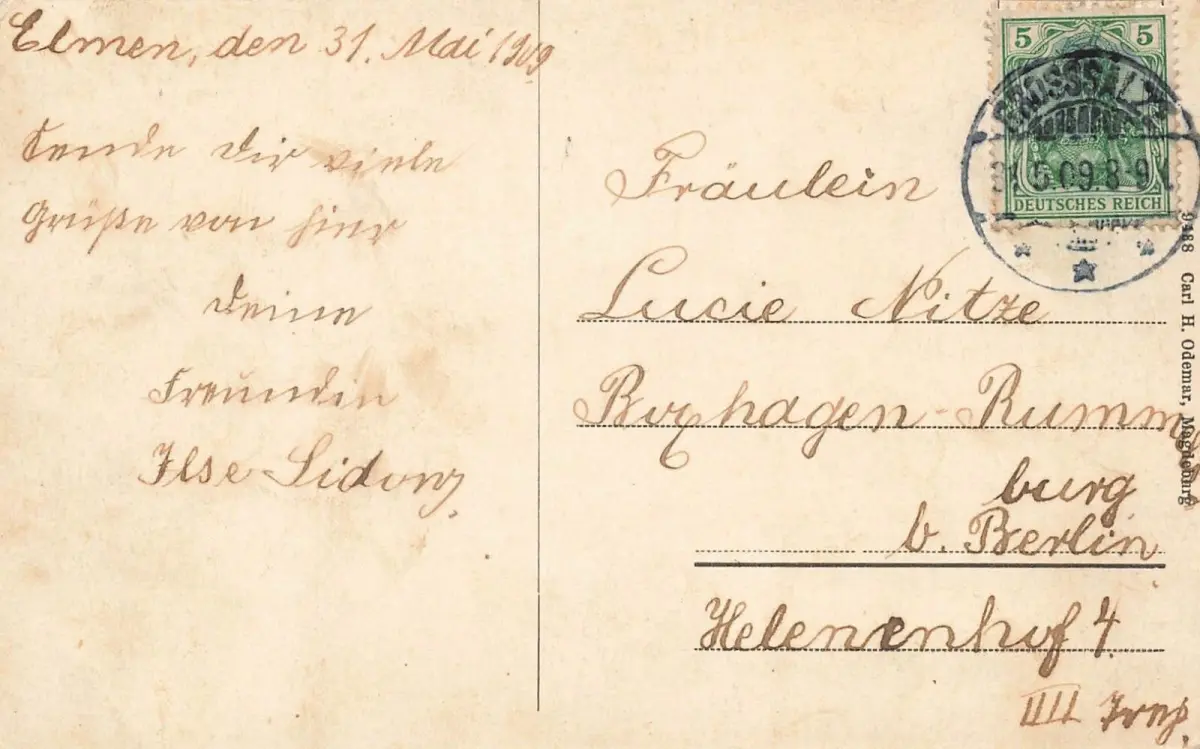 Elmen, den 31. Mai 1909
Sende Dir viele
Grüße von hier
Deine
Freundin
Ilse Sidony.
5 5
GROSSSALZE
31.5.09.8-9V.
DEUTSCHES REICH
Fräulein
Lucie Nitze
Boxhagen-Rummels
burg
b. Berlin
Helenenhof 4.
IIII
9488 Carl H. Odemar, Magdeburg